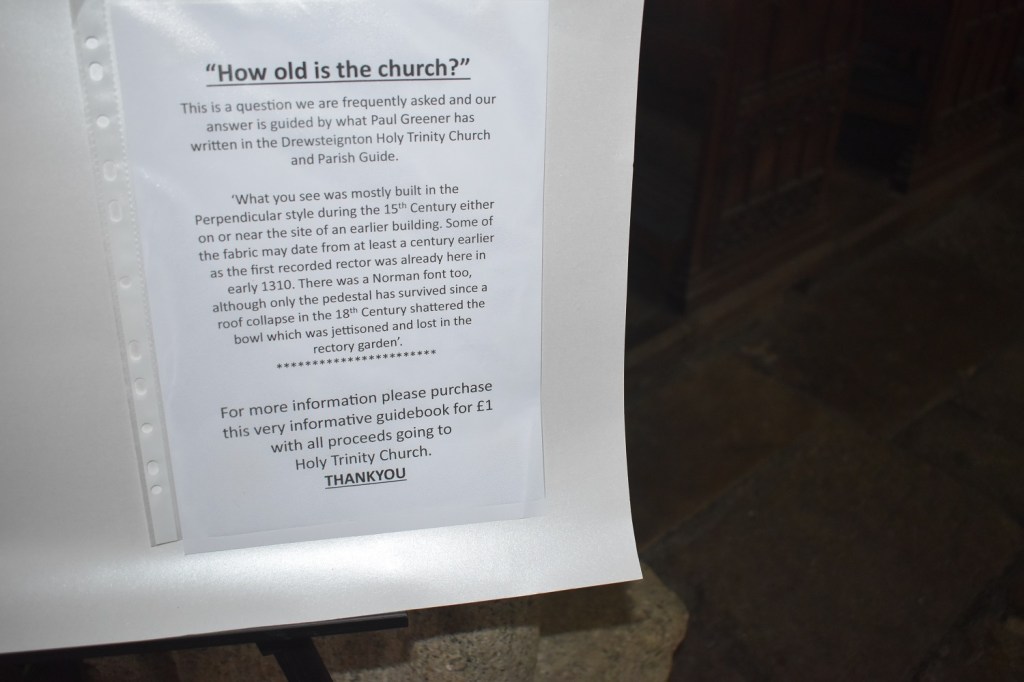 “How old is the church?”
This is a question we are frequently asked and our
answer is guided by what Paul Greener has
written in the Drewsteignton Holy Trinity Church
and Parish Guide.
‘What you see was mostly built in the
Perpendicular style during the 15th Century either
on or near the site of an earlier building. Some of
the fabric may date from at least a century earlier
as the first recorded rector was already here in
early 1310. There was a Norman font too,
although only the pedestal has survived since a
roof collapse in the 18th Century shattered the
bowl which was jettisoned and lost in the
rectory garden’.
************************
For more information please purchase
this very informative guidebook for £1
with all proceeds going to
Holy Trinity Church.
THANKYOU